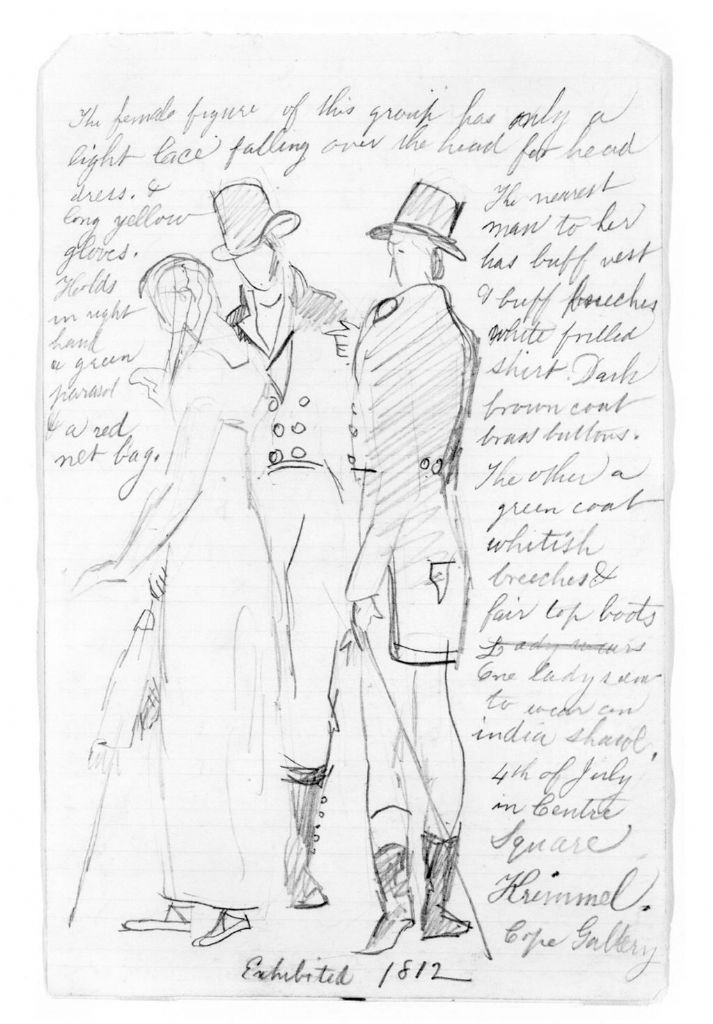 The female figure of this group has only a
light lace falling over the head for head
dress. &
long yellow
gloves.
Holds
in right
hand
a green
parasol
& a red
net bag.
The nearest
man to her
has buff vest
& buff breeches
white frilled
shirt. Dark
brown coat
brass buttons.
The other a
green coat
whitish
breeches &
fair top boots
Lady wears
One lady seem
to wear an
india shawl.
4th of July
in Centre
Square
Krimmel.
Cope Gallery
Exhibited 1812